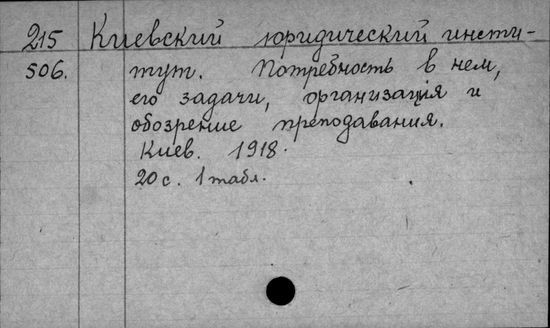 215 Киевский юридический инсти-
506. тут. Потребность в нем,
его задачи, организацiя и
обозрение преподавания.
Киев. 1918.
20 с. 1 табл.